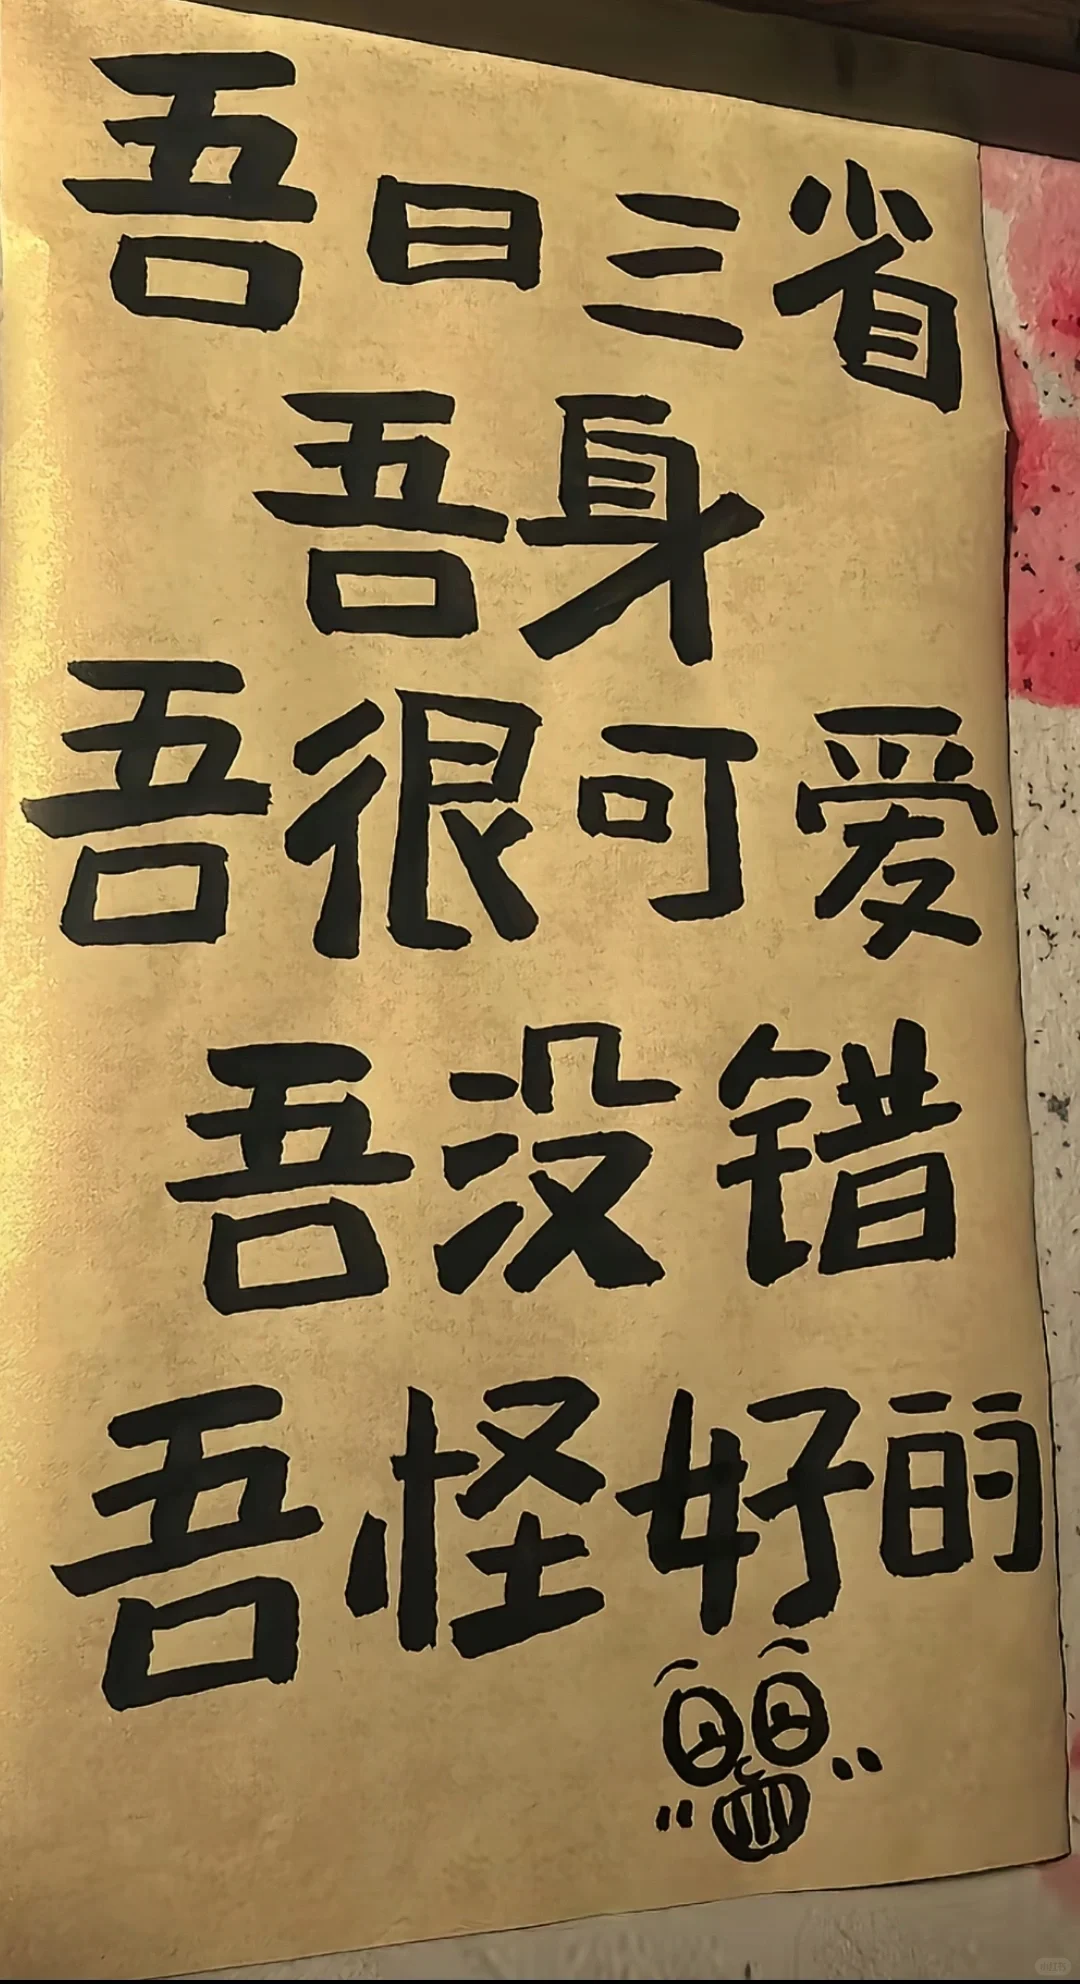 吾日三省
吾身
吾很可爱
吾没错
吾怪好的